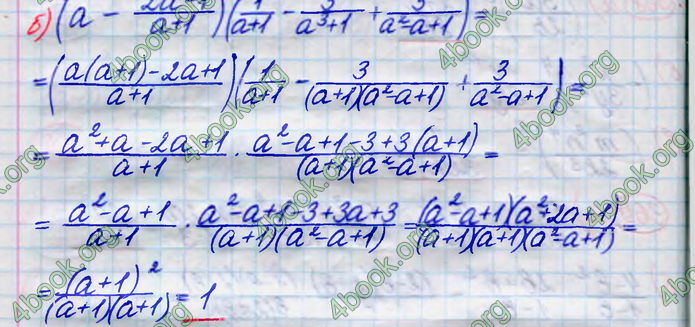 б) (a - 2a-1/a+1)(1/a+1 - 3/a³+1 + 3/a²-a+1) =
= (a(a+1)-2a+1/a+1)(1/a+1 - 3/(a+1)(a²-a+1) + 3/a²-a+1) =
= a²+a-2a+1/a+1 · a²-a+1-3+3(a+1)/(a+1)(a²-a+1) =
= a²-a+1/a+1 · a²-a+1-3+3a+3/(a+1)(a²-a+1) = (a²-a+1)(a²+2a+1)/(a+1)(a+1)(a²-a+1) =
= (a+1)²/(a+1)(a+1) = 1
4book.org
4book.org
4book.org
4book.org
4book.org
4book.org
4book.org
4book.org